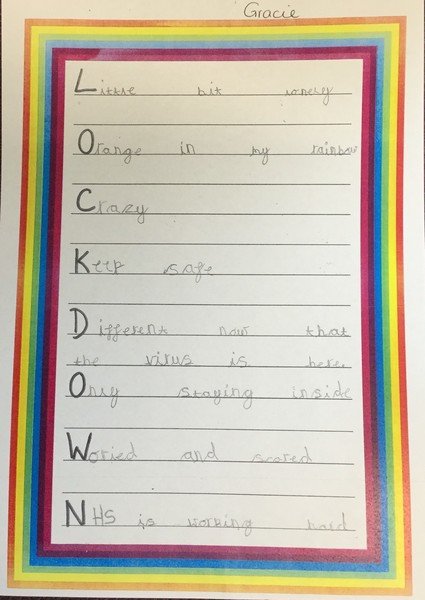 Gracie
Little bit lonely
Orange in my rainbow
Crazy
Keep safe
Different now that
the virus is here.
Only staying inside
Woried and scared
NHS is working hard